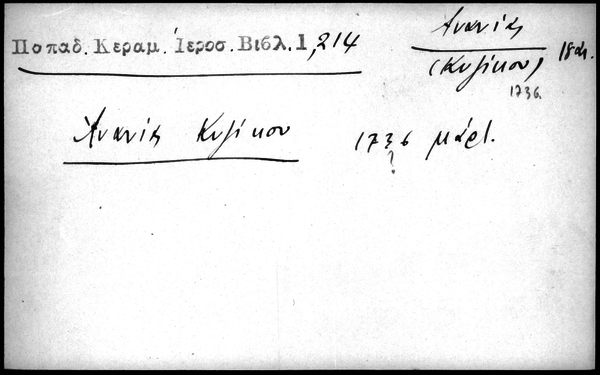 Παπαδ. Κεραμ. Ἱεροσ. Βιβλ. 1, 214
Ἀνανίας
(Κυζίκου)
18 αι.
1736
Ἀνανίας Κυζίκου 1736 μάρτ.
?